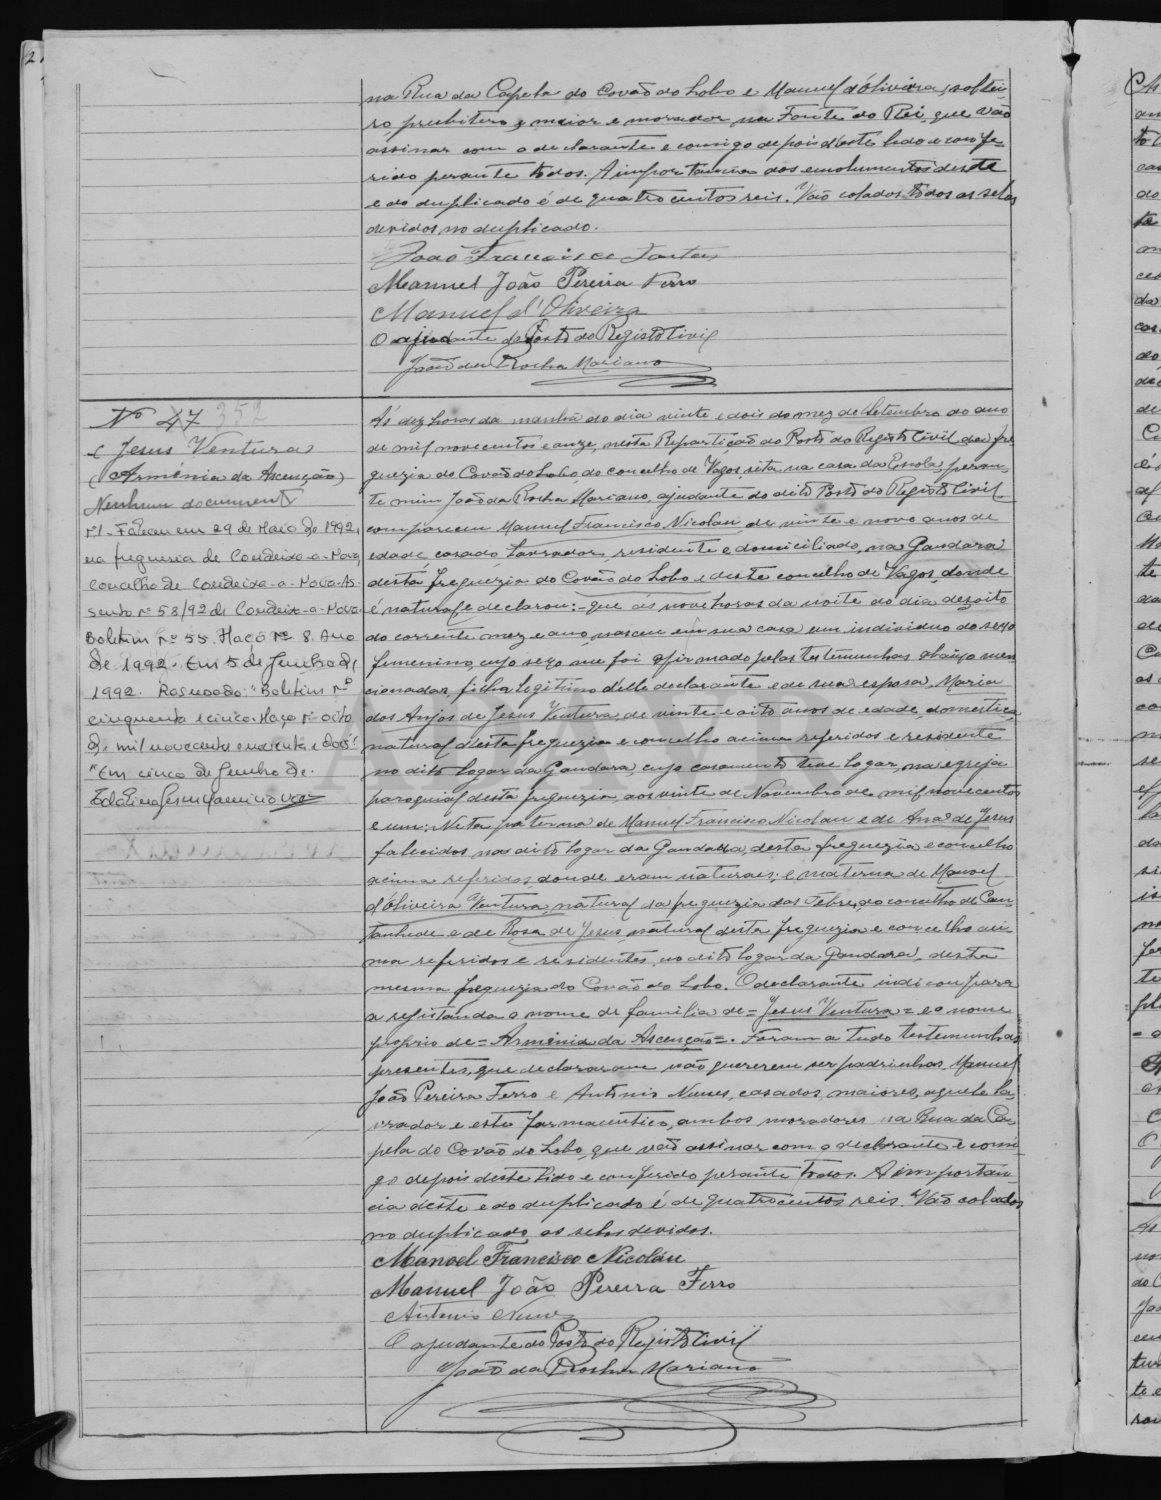 na Rua da Capela do Covão do Lobo e Manuel d'Oliveira, soltei-
ro, presbitero, maior e morador, na Fonte do Rei, que vão
assinar com o declarante e comigo depois d'este lido e confe-
rido perante todos. A importancia dos emolumentos deste
e do duplicado é de quatrocentos reis. Vão colados todos os selos
devidos no duplicado.
João Francisco
Manuel João Pereira Ferro
Manuel d'Oliveira
O ajudante do Posto do Registo Civil
João da Rocha Mariano
Nº 47 352
Jesus Ventura
(Arménia da Ascenção)
Nenhum documento
Nº1 - Faleceu em 29 de Maio de 1992,
na freguesia de Condeixa-a-Nova,
concelho de Condeixa-a-Nova. As-
sento nº 58/92 de Condeixa-a-Nova.
Boletim nº 55. Maço nº 8. Ano
de 1992. Em 5 de Junho de
1992. Ressalvado: "Boletim nº
cinquenta e cinco. Maço nº oito
de mil novecentos e noventa e dois"
"Em cinco de Junho de.
Às dez horas da manhã do dia vinte e dois do mez de Setembro do ano
de mil novecentos e onze, nesta Repartição do Posto do Registo Civil da fre
guezia do Covão do Lobo, do concelho de Vagos, sita na casa da Escola, peran-
te mim João da Rocha Mariano, ajudante do dito Posto do Registo Civil
compareceu Manuel Francisco Nicolau, de vinte e nove anos de
edade, casado, lavrador, residente e domiciliado, na Gandara
desta freguezia do Covão do Lobo e deste concelho de Vagos, donde
é natural e declarou: - que ás nove horas da noite do dia dezoito
do corrente mez e ano, nasceu em sua casa um individuo do sexo
femenino, cujo sexo me foi afirmado pelas testemunhas abaixo men
cionadas, filha legitima delle declarante e de sua esposa, Maria
dos Anjos de Jesus Ventura, de vinte e oito anos de edade, domestica,
natural desta freguezia e concelho acima referidos e residente
no dito logar da Gandara, cujo casamento teve logar, na egreja
paroquial desta freguezia, aos vinte de Novembro de mil novecentos
e um: Neta paterna de Manuel Francisco Nicolau e de Ana de Jesus
falecidos no dito logar da Gandara, desta freguezia e concelho
acima referidos donde eram naturaes; e materna de Manoel
d'Oliveira Ventura, natural da freguezia das Febres, do concelho de Can-
tanhede e de Rosa de Jesus, natural desta freguezia e concelho aci-
ma referidos e residentes, no dito logar da Gandara, desta
mesma freguezia do Covão do Lobo. O declarante indicou para
a registanda o nome de familia de = Jesus Ventura = e o nome
proprio de = Arménia da Ascenção =. Foram a tudo testemunhas
presentes, que declararam não quererem ser padrinhos, Manuel
João Pereira Ferro e Antonio Nunes, casados, maiores, aquele la-
vrador e este farmaceutico, ambos moradores na Rua da Ca-
pela do Covão do Lobo, que vão assinar com o declarante e comi
go depois deste lido e conferido perante todos. A importan-
cia deste e do duplicado é de quatrocentos reis. Vão colados
no duplicado os selos devidos.
Manoel Francisco Nicoláu
Manuel João Pereira Ferro
Antonio Nunes
O ajudante do Posto do Registo Civil
João da Rocha Mariano